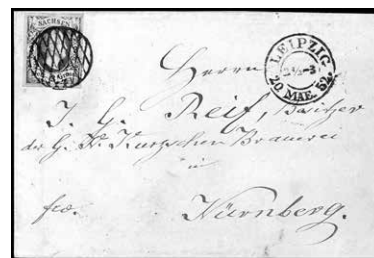 SACHSEN
LEIPZIG
2½-3
20 MAE. 52.
Herrn
J. G. Reif, Besitzer
der G. N. Kurz'schen Brauerei
in
fco. Nürnberg.